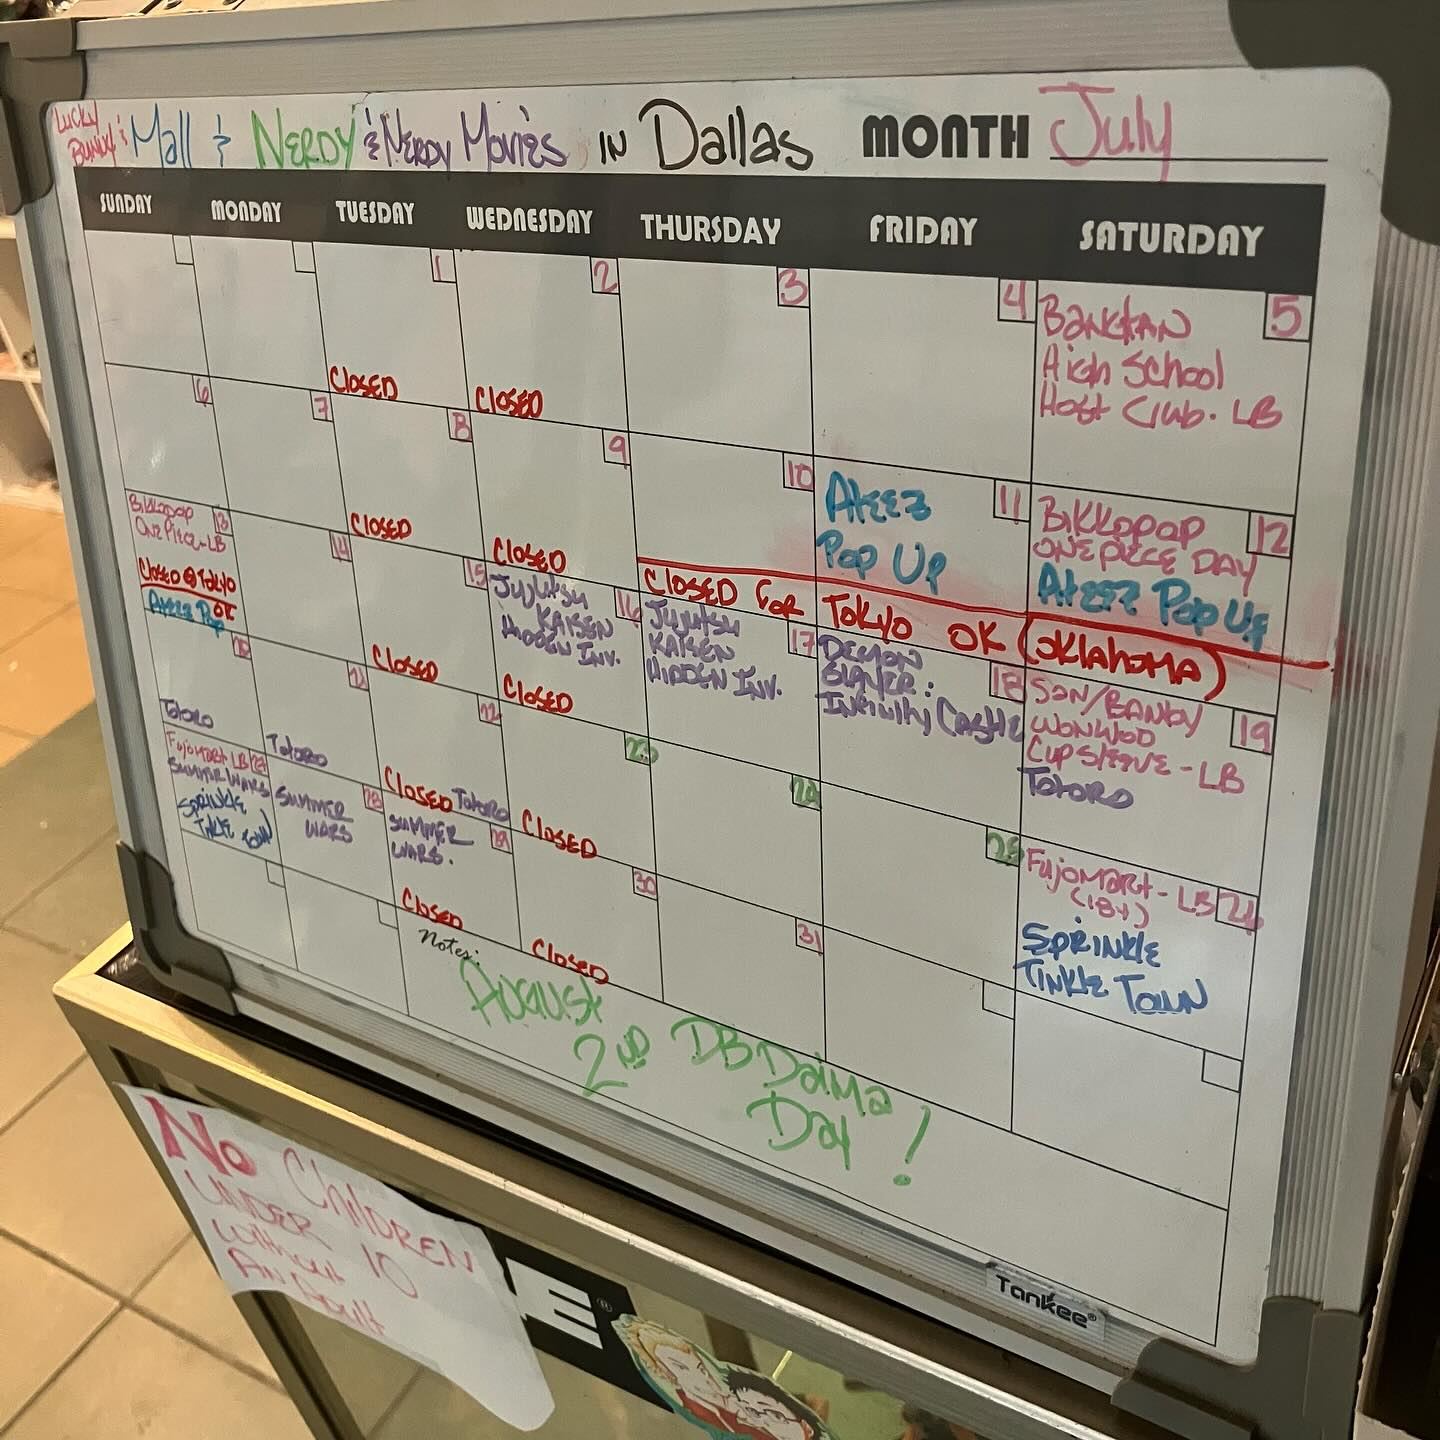 Lucky
Bunny & Mall & NERDY & NERDY Movies IN Dallas MONTH July
SUNDAY MONDAY TUESDAY WEDNESDAY THURSDAY FRIDAY SATURDAY
1 2 3 4 5
CLOSED
CLOSED
BANKTAN
High School
Host Club. LB
6 7 8 9 10 11 12
CLOSED
CLOSED
Ateez
Pop Up
BIKKOPOP
ONE PIECE DAY
Ateez Pop Up
CLOSED FOR TOKYO OK (OKLAHOMA)
BIKKOPOP 13
ONE PIECE-LB
CLOSED @ TOKYO
OK
Ateez Pop
14 15 16 17 18 19
CLOSED
JUJUTSU
KAISEN
HIDDEN INV.
CLOSED
JUJUTSU
KAISEN
HIDDEN INV.
DEMON
SLAYER:
INFINITY CASTLE
SAN/BANDY
WONWOO
CUPSLEEVE - LB
TOTORO
20 21 22 23 24 25 26
TOTORO
TOTORO
CLOSED TOTORO
CLOSED
FUJOMART - LB
(18+)
SPRINKLE
TINKLE TOWN
FUJOMART LB
SUMMER WARS
SPRINKLE
TINKLE TOWN
28 29 30 31
SUMMER
WARS
SUMMER
WARS.
CLOSED
CLOSED
Notes:
August
2ND DB Daima
Day!
Tankee®
No Children
UNDER 10
Without
An Adult
E®